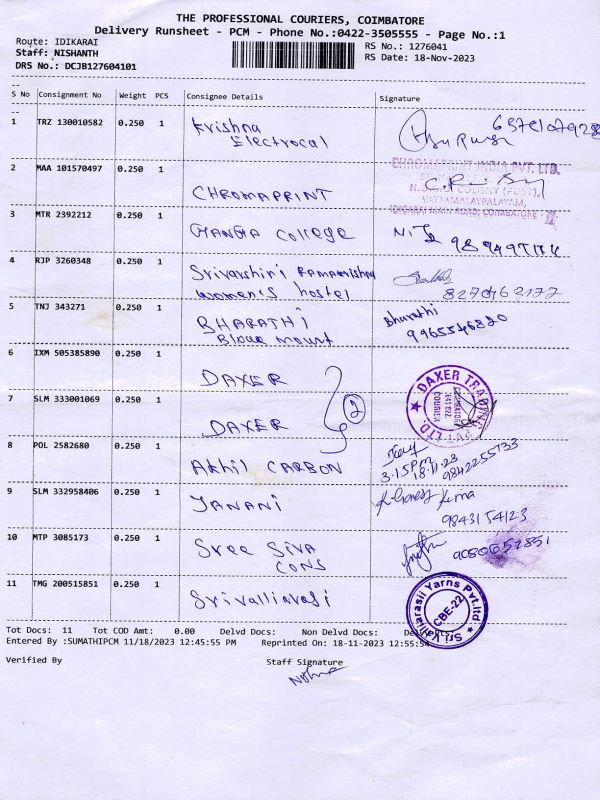 THE PROFESSIONAL COURIERS, COIMBATORE
Delivery Runsheet - PCM - Phone No.:0422-3505555 - Page No.:1
Route: IDIKARAI
Staff: NISHANTH
DRS No.: DCJB127604101
RS No.: 1276041
RS Date: 18-Nov-2023
S No Consignment No Weight PCS Consignee Details Signature
1 TRZ 130010582 0.250 1 Krishna
Electrocal
2 MAA 101570497 0.250 1 CHROMAPRINT
CHROMAPRINT INDIA PVT. LTD.
COLONY (POST),
VATTAMALAYPALAYAM,
IDIGARAI MAIN ROAD, COIMBATORE
3 MTR 2392212 0.250 1 GANGA College
4 RJP 3260348 0.250 1 Srivarshini Ramakrishna
women's hostel
8270462177
5 TNJ 343271 0.250 1 BHARATHI
Blour mount
Bharathi
9965546820
6 IXM 505385890 0.250 1 DAXER
7 SLM 333001069 0.250 1 DAXER
2
DAXER TRADING PVT LTD.
8 POL 2582680 0.250 1 Akhil CARBON
3.15pm
18.11.23
9842255733
9 SLM 332958406 0.250 1 JANANI
9843154123
10 MTP 3085173 0.250 1 Sree Siva
CONS
11 TMG 200515851 0.250 1 Srivalliarasi
Sri Valliarasii Yarns Pvt.ltd
CBE-22
Tot Docs: 11 Tot COD Amt: 0.00 Delvd Docs: Non Delvd Docs:
Entered By :SUMATHIPCM 11/18/2023 12:45:55 PM Reprinted On: 18-11-2023 12:55:54
Verified By Staff Signature